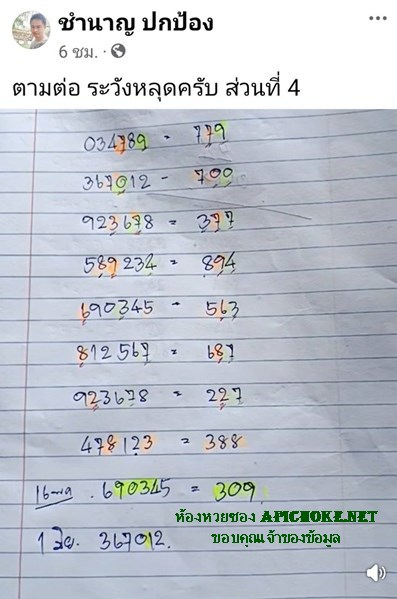 ชำนาญ ปกป้อง
6 ชม. ·
ตามต่อ ระวังหลุดครับ ส่วนที่ 4
034789 = 779
367012 - 700
923678 = 377
589234 = 894
690345 - 563
812567 = 687
923678 = 227
478123 = 388
16พค . 690345 = 309
ห้องหวยซอง APICHOKE.NET
ขอบคุณเจ้าของข้อมูล
1 มิย. 367012.